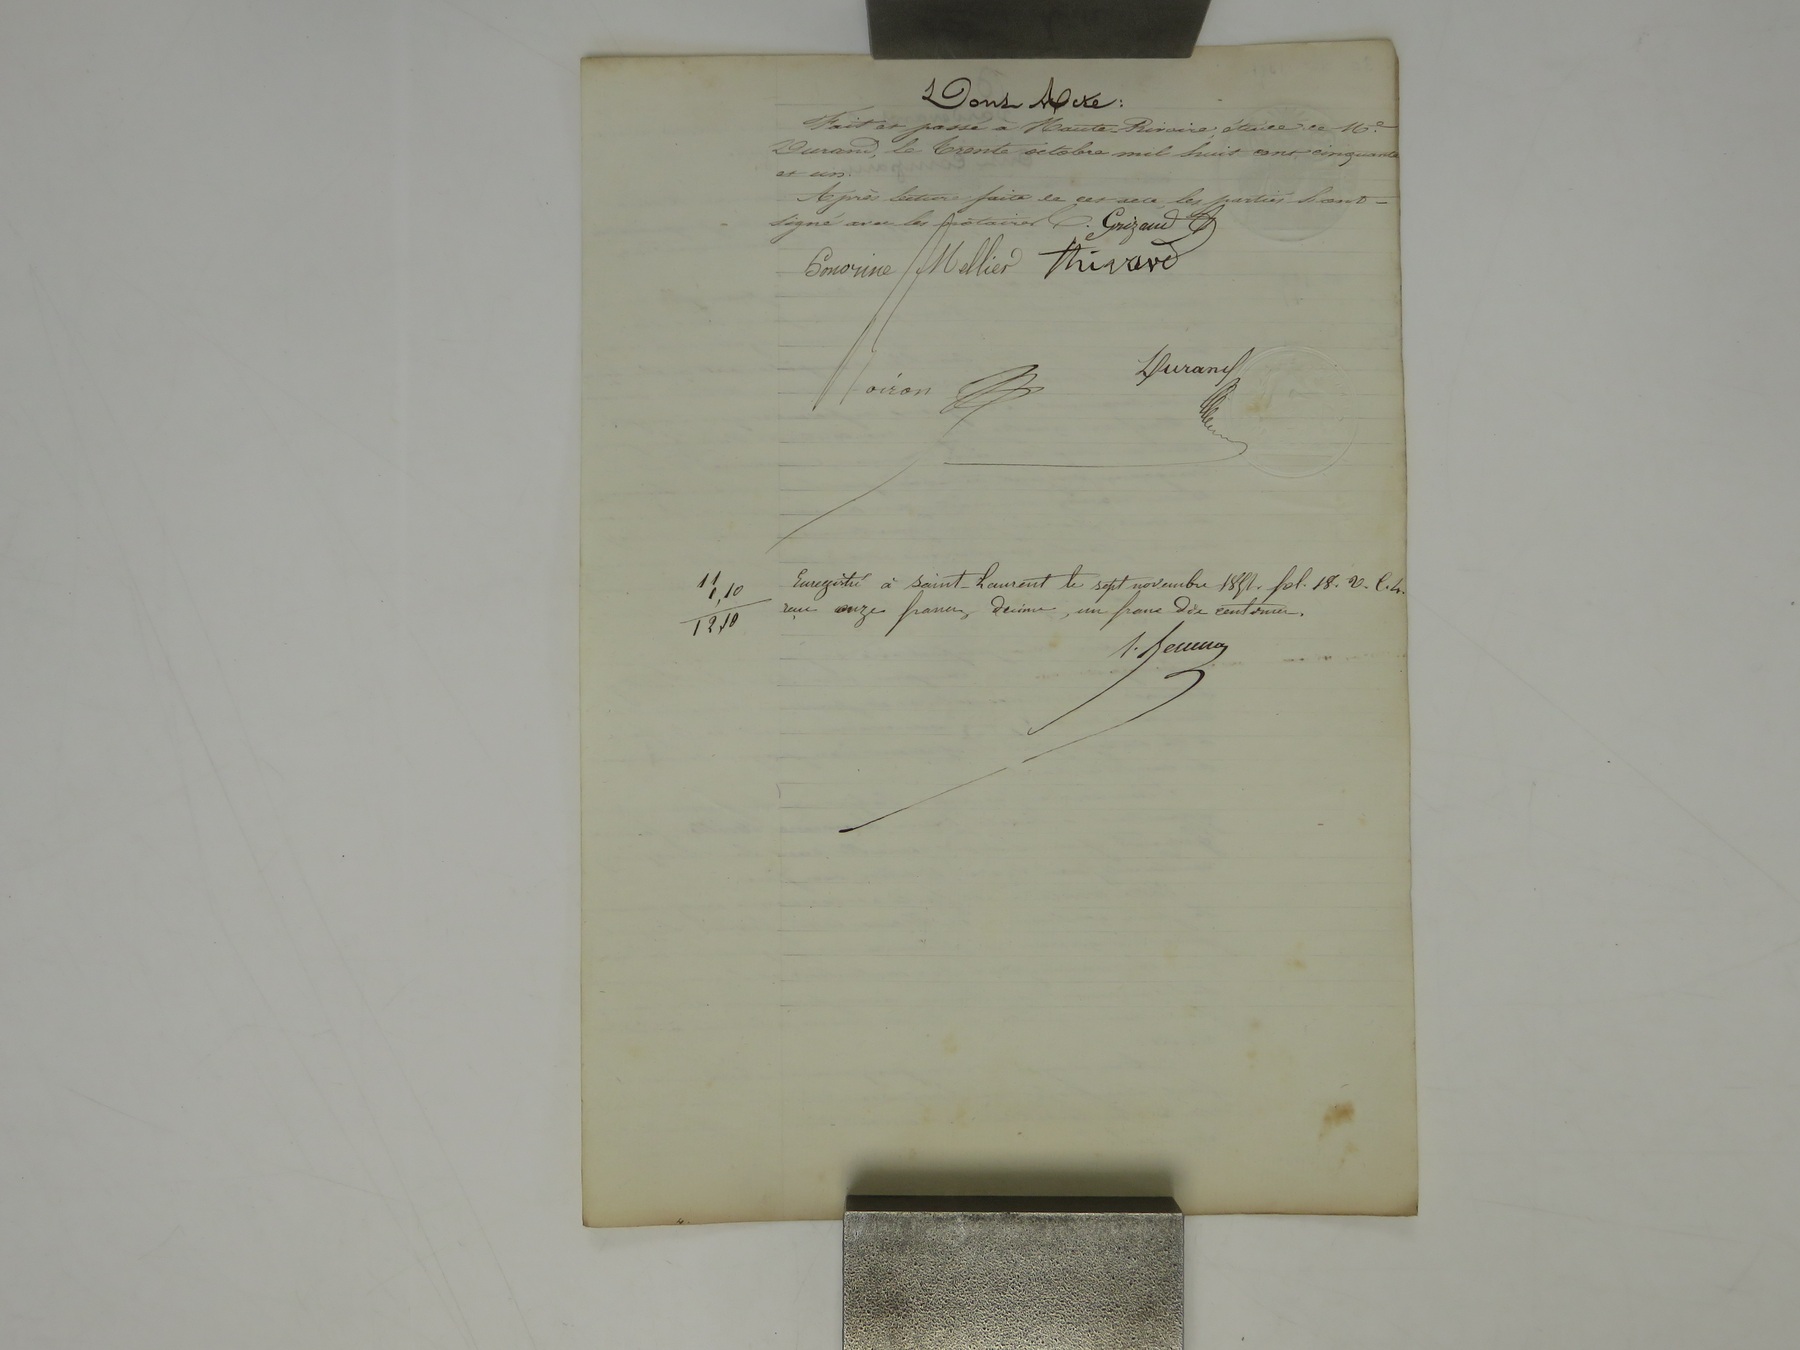 Dont Acte:
Fait et passé à Haute-Rivoire, étude de Me.
Durand, le trente octobre mil huit cent cinquante
et un.
Après lecture faite de cet acte, les parties l'ont
signé avec les notaires. Grizaud
Honorine Mellier Thivard
Noiron Durand
11
1,10
12,10
Enregistré à Saint-Laurent le sept novembre 1851. fol. 18. v. c. 4.
reçu onze francs, décime, un franc dix centimes.